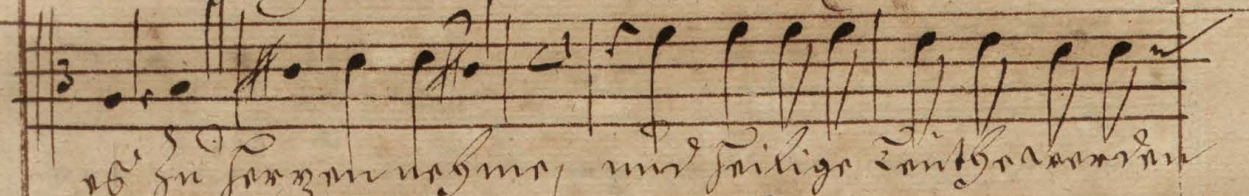 3
es zu Herzen nehme, und heilige Leuthe werden